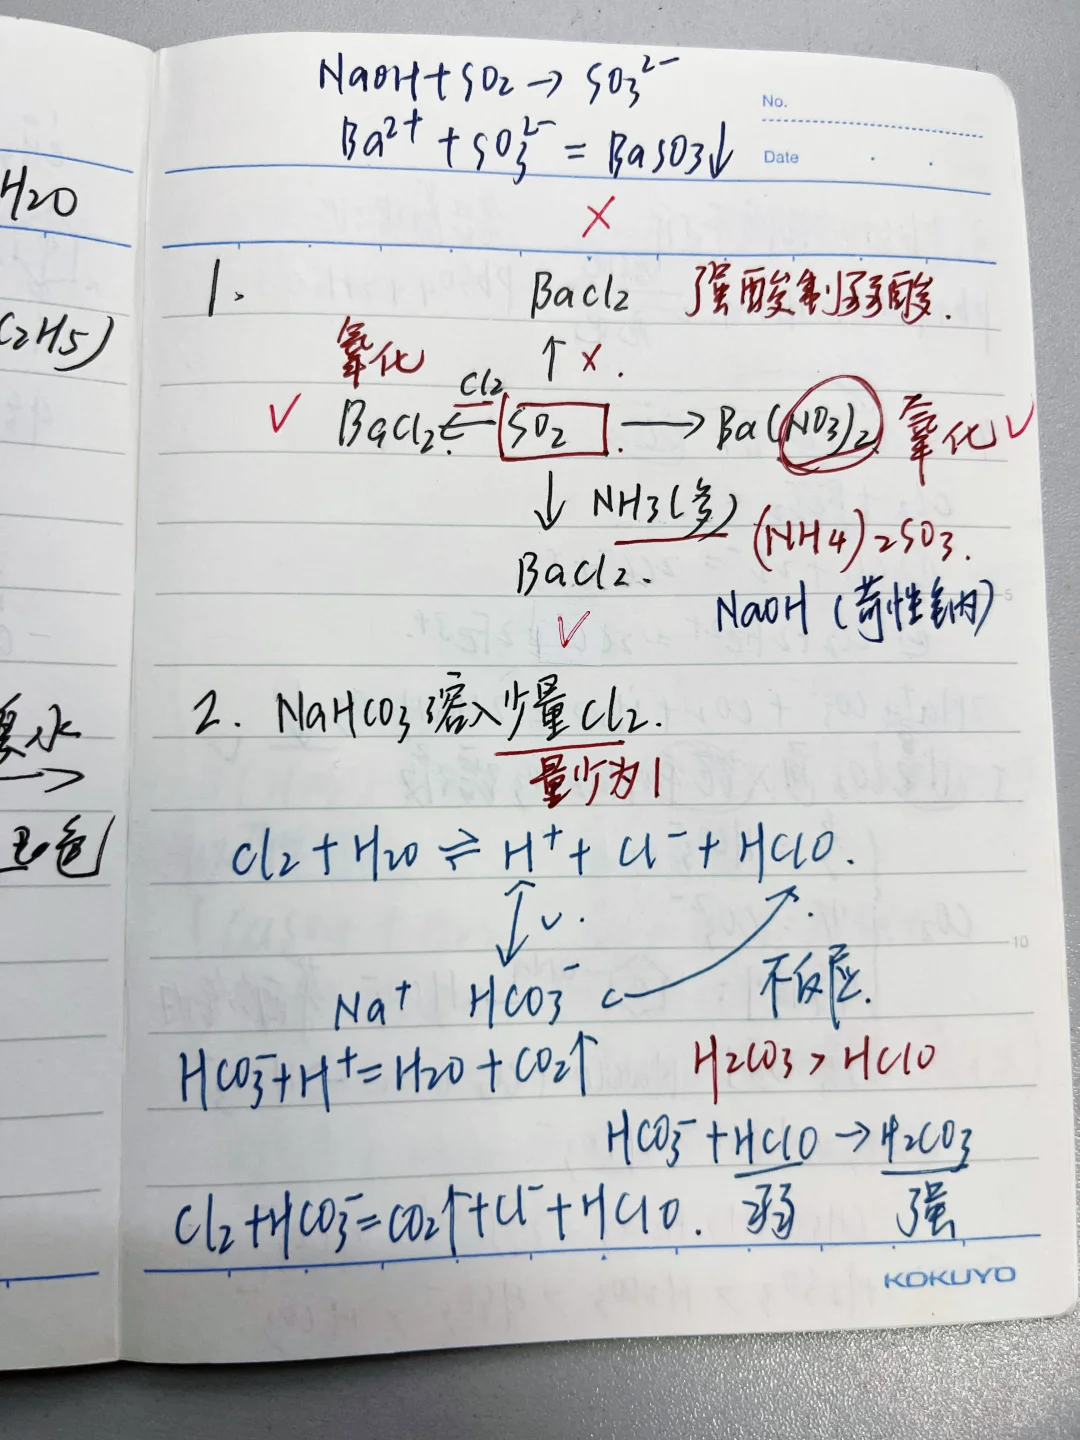 NaOH+SO2→SO3²⁻
No.
Ba²⁺+SO3²⁻=BaSO3↓
Date
×
1.
BaCl2 强酸制弱酸.
氧化 ↑×.
Cl2
√ BaCl2.← SO2 → Ba(NO3)2 氧化√
↓ NH3(多) (NH4)2SO3.
BaCl2.
NaOH (苛性钠)
5
√
2. NaHCO3溶入少量Cl2.
量少为1
Cl2+H2O⇌H⁺+Cl⁻+HClO.
√.
10
Na⁺ HCO3⁻ 不反应.
HCO3⁻+H⁺=H2O+CO2↑ H2CO3>HClO
HCO3⁻+HClO→H2CO3
弱 强
Cl2+HCO3⁻=CO2↑+Cl⁻+HClO.
KOKUYO
H2O
C2H5)
水
→
色